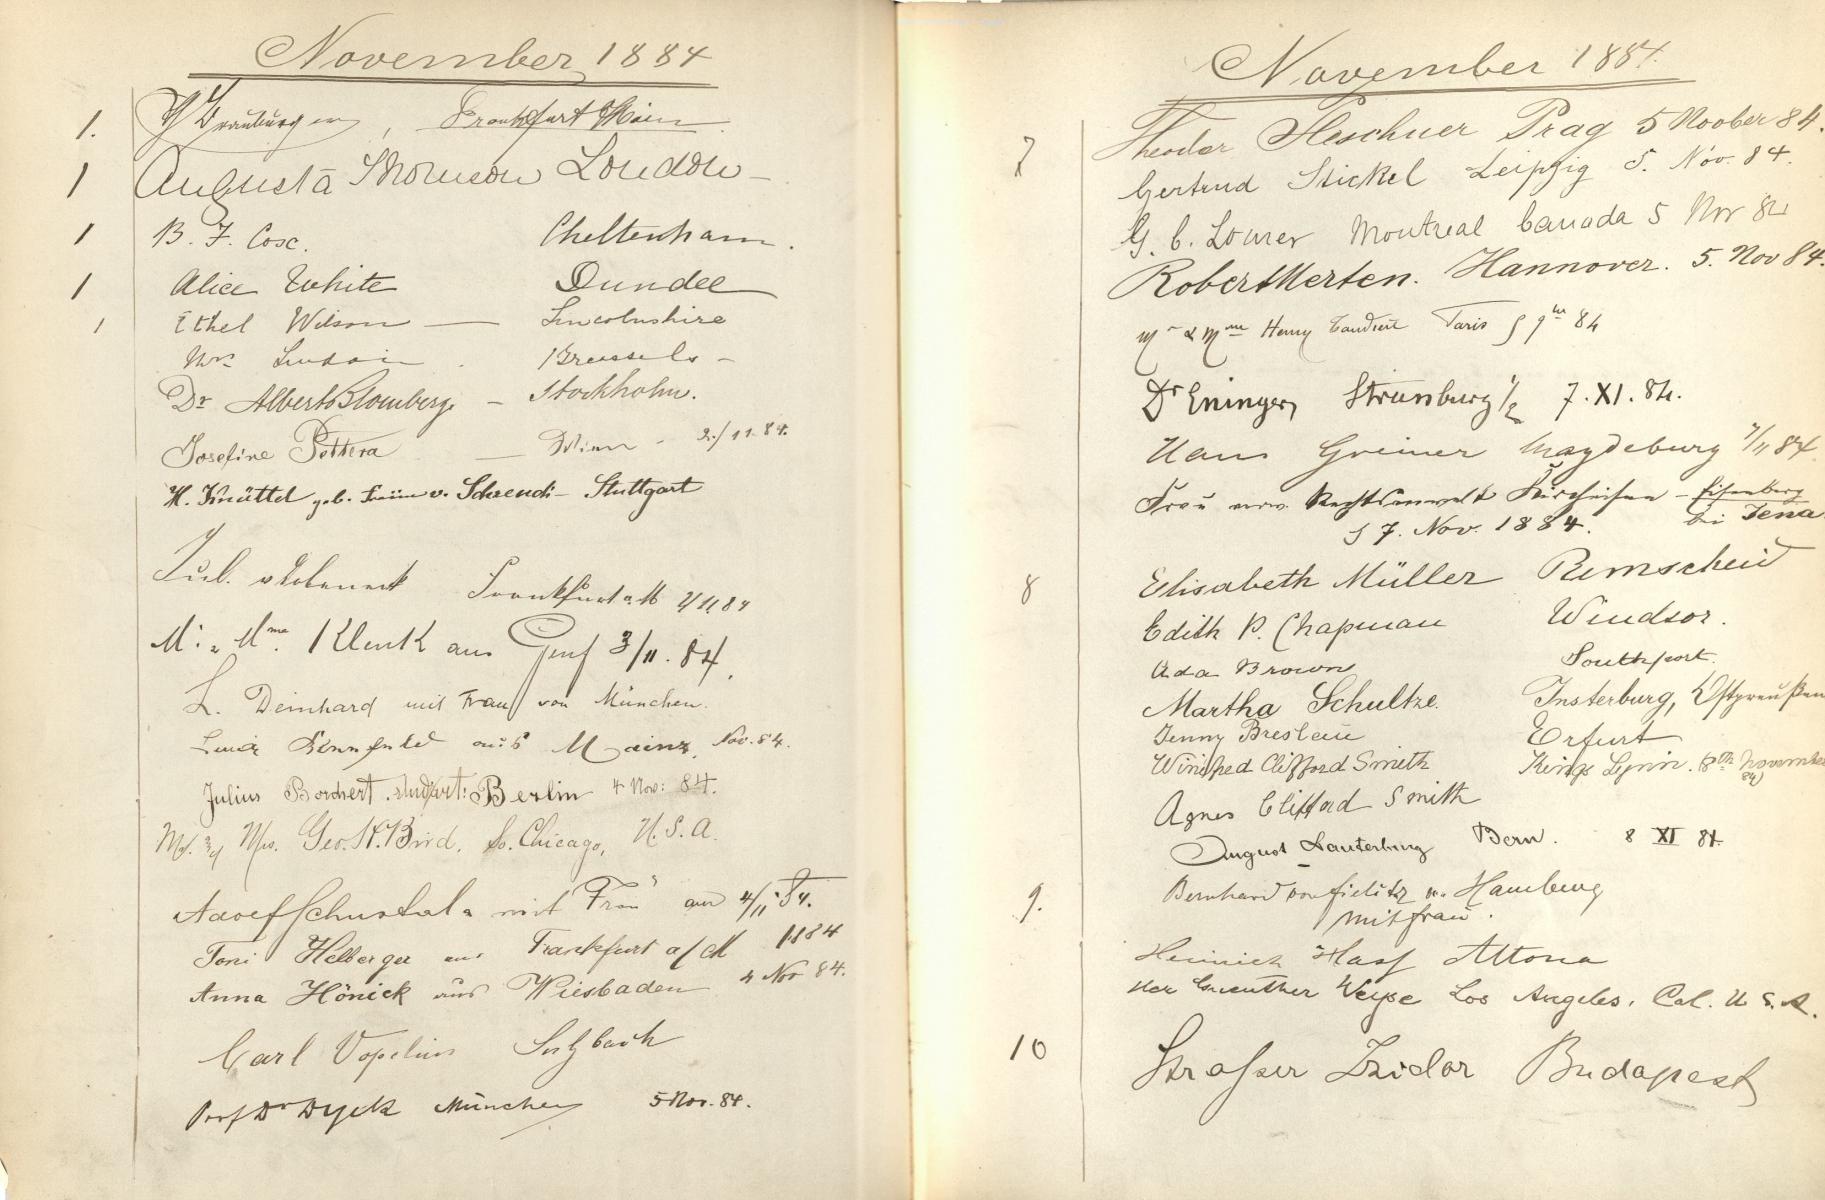 November 1884
1. Frankfurt Main
1 Augusta Thomson London
1 B. F. Cosc. Cheltenham.
1 Alice White Dundee
1 Ethel Wilson Lincolnshire
Mrs Brussels
Dr Albert Blomberg Stockholm.
Josefine Pettera Wien 2/11 84.
H. Knüttel geb. v. Stuttgart
Frankfurt a M 2/11 84
Mr. & Mme. Klenk aus Genf 3/11. 84.
L. Deinhard mit Frau von München.
aus Mainz, Nov. 84.
Julius Borchert. Berlin 4 Nov: 84.
Mr. & Mrs. Geo. St. Bird. So. Chicago, U.S.A.
mit Frau 4/11 84.
Toni Helberger aus Frankfurt a/M 1884
Anna Hönick aus Wiesbaden 4 Nov 84.
Carl Vopelius Sulzbach
Prof Dr Dyck München 5 Nov. 84.
November 1884.
7 Theodor Pleschner Prag 5 Noober 84.
Gertrud Stickel Leipzig 5. Nov. 84.
G. C. Montreal Canada 5 Nov 84
Robert Merten. Hannover. 5. Nov 84.
Mr & Mme Henry Paris 84
Dr Eninger, 7. XI. 84.
Hans Greiner Magdeburg 7/11 84
Frau verw. Rechtsanwalt Eisenberg
7. Nov. 1884. bei Jena
8 Elisabeth Müller Remscheid
Edith P. Chapman Windsor.
Ada Brown Southport.
Martha Schultze Insterburg, Ostpreußen
Jenny Breslau Erfurt
Winifred Clifford Smith Kings Lynn. (8th November 84)
Agnes Clifford Smith
August Lauterburg Bern. 8 XI 84
9. Bernhard von Hamburg
mit frau.
Heinrich Hass Altona
Weyse Los Angeles, Cal. U.S.A.
10 Strasser Izidor Budapest